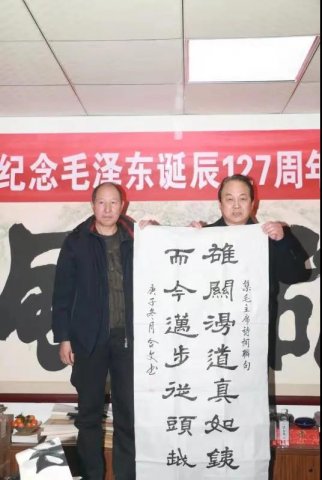 纪念毛泽东诞辰127周年
集毛主席詩詞聯句
雄關漫道真如銕
而今邁步從頭越
庚子冬月